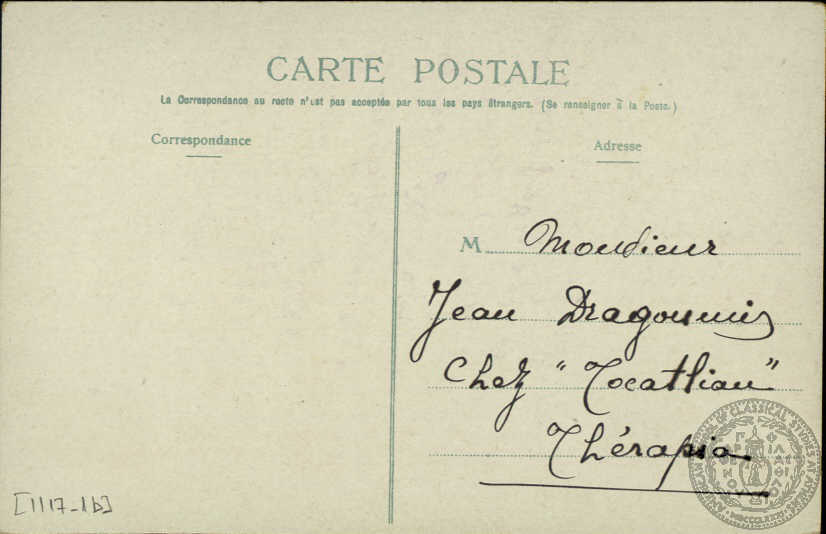 CARTE POSTALE
La Correspondance au recto n'est pas acceptée par tous les pays étrangers. (Se renseigner à la Poste.)
Correspondance
Adresse
M Monsieur
Jean Dragoumis
Chez "Tocatlian"
Thérapia
[1117-1b]